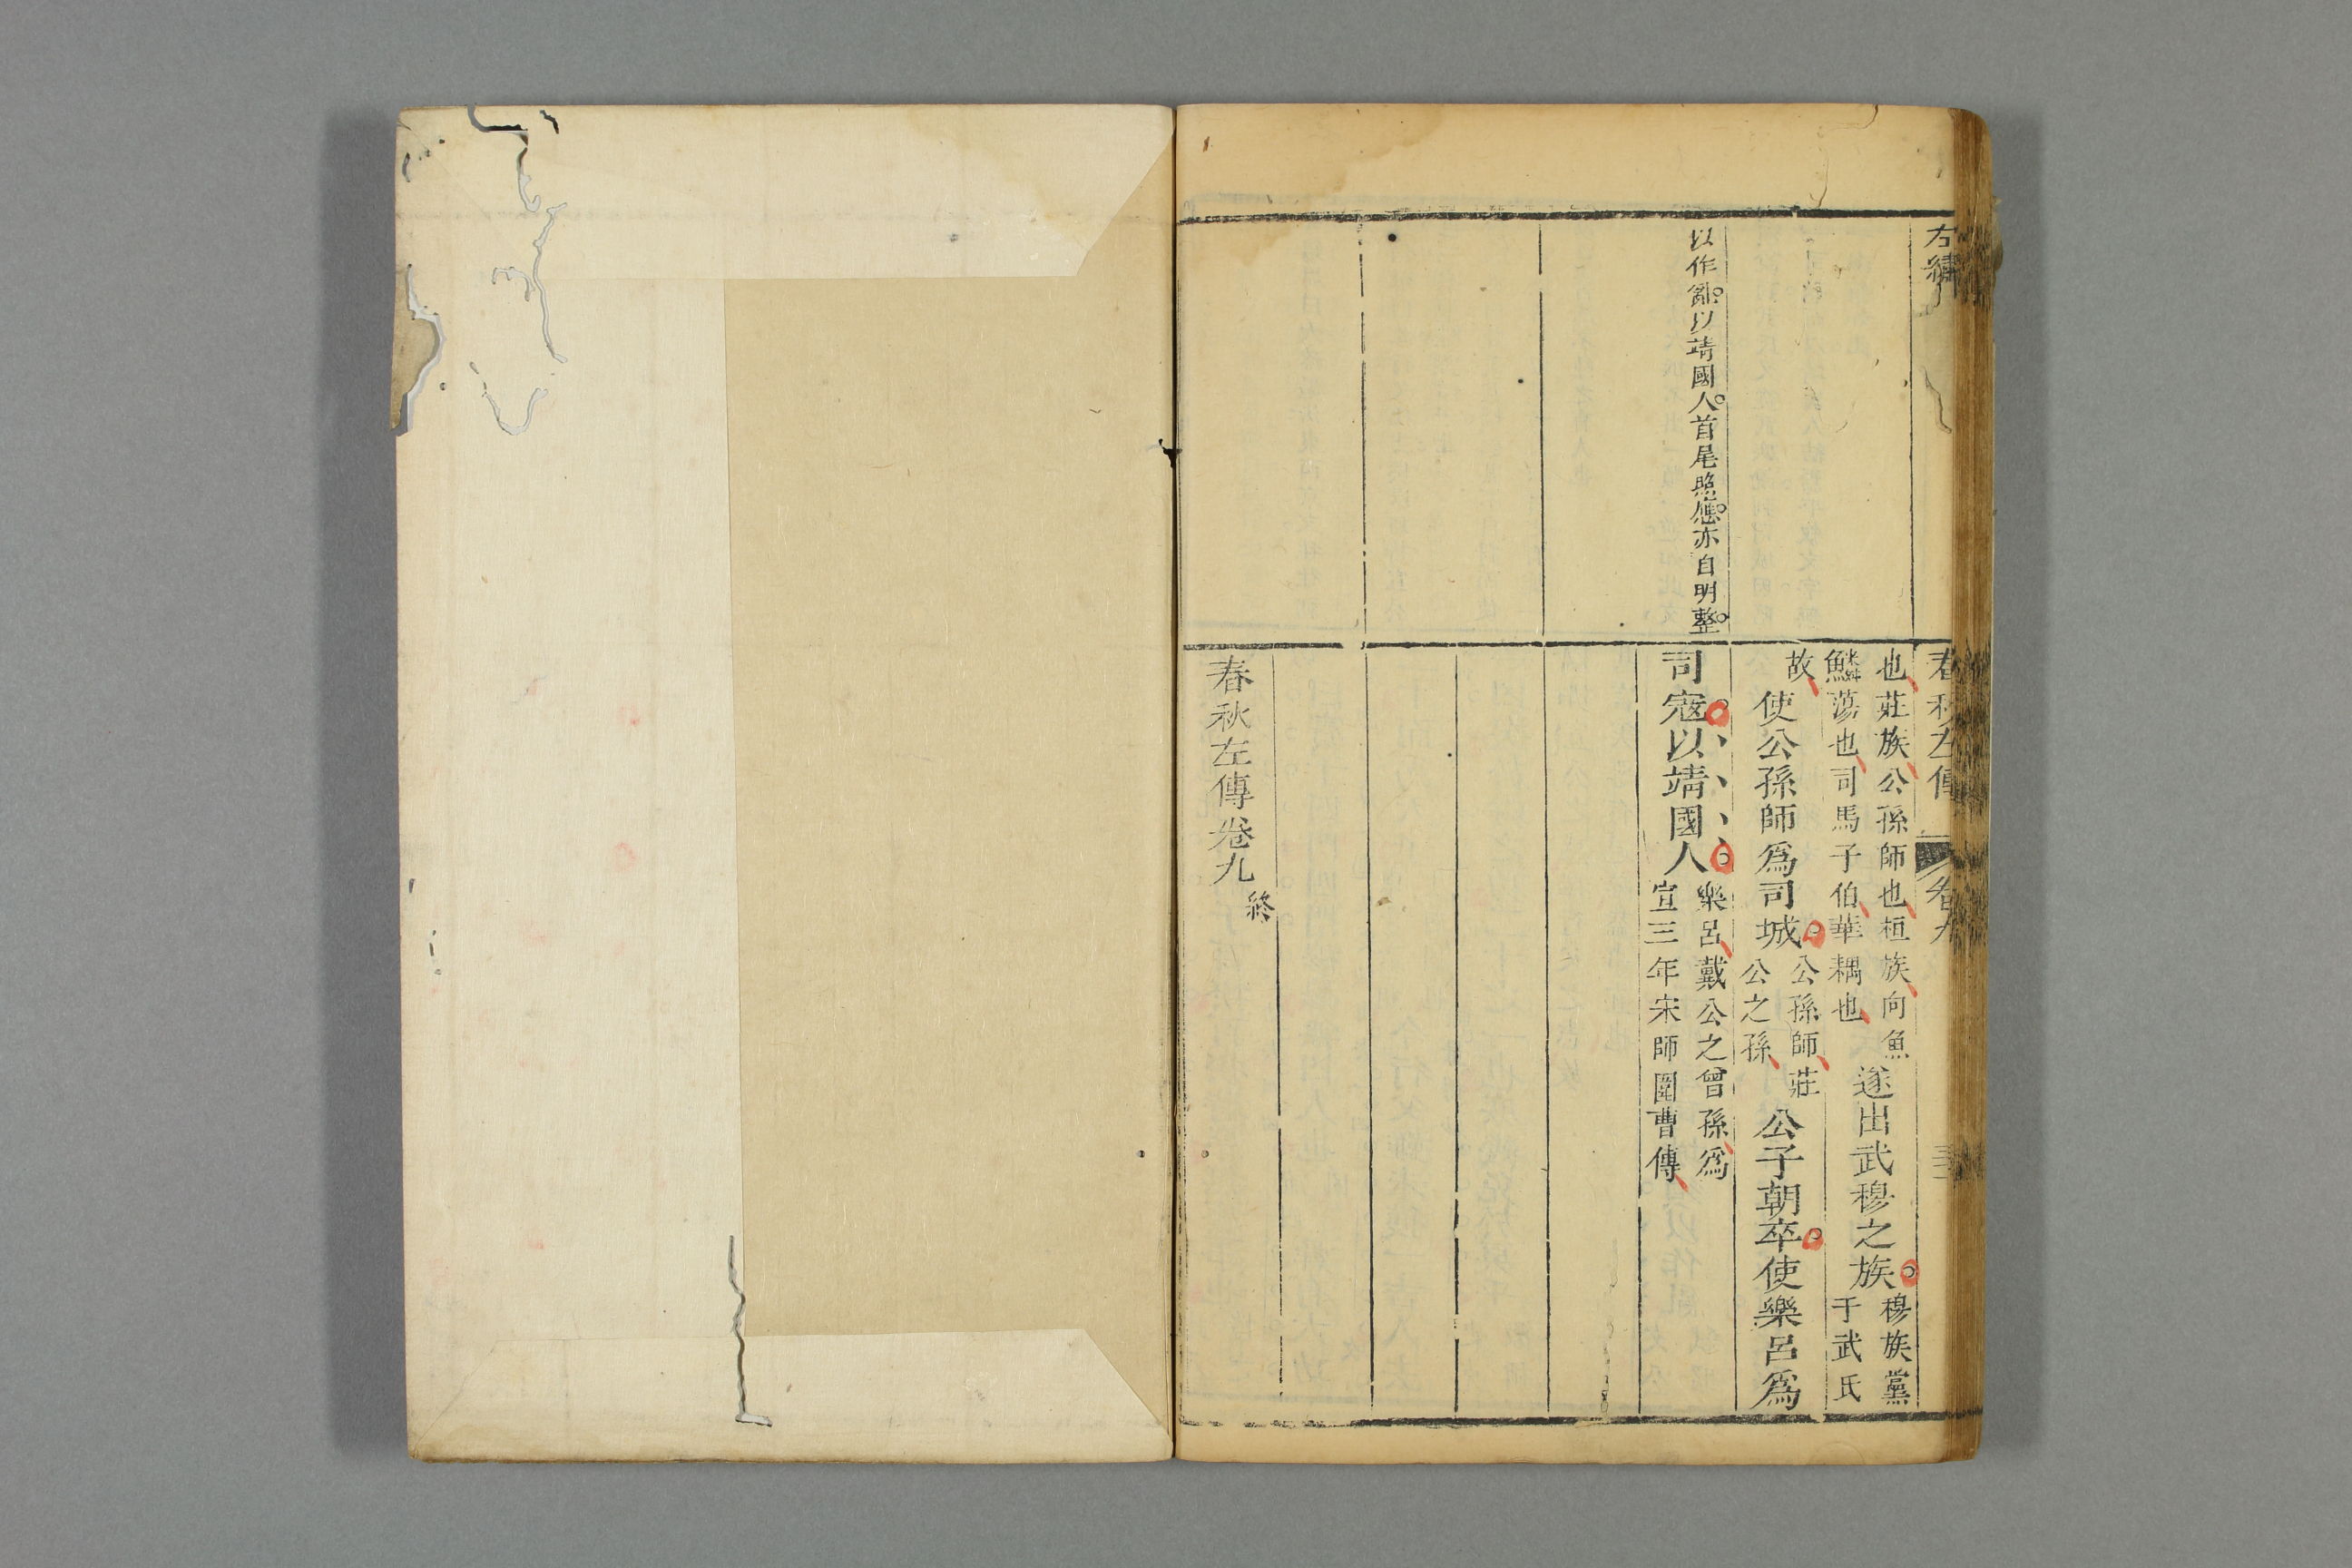 左繡
以作亂以靖國人首尾照應亦自明整
春秋左傳 卷九
也莊族公孫師也桓族向魚
鱗蕩也司馬子伯華耦也
遂出武穆之族
穆族黨
于武氏
故
使公孫師爲司城
公孫師莊
公之孫
公子朝卒使樂呂爲
司寇以靖國人
樂呂戴公之曾孫爲
宣三年宋師圍曹傳
春秋左傳卷九終